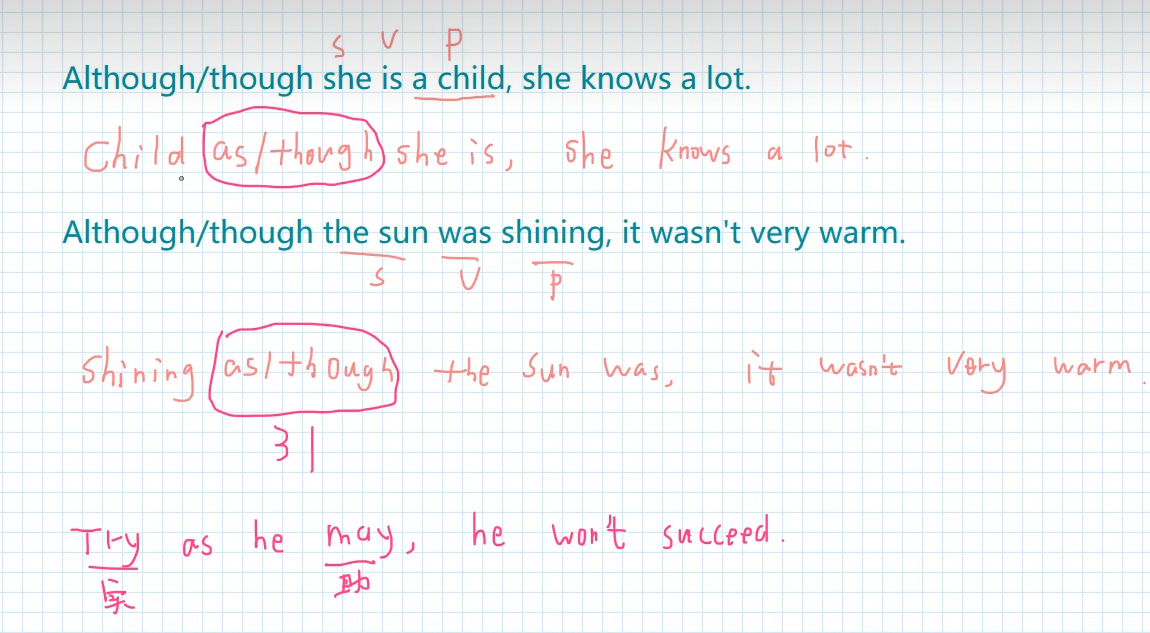 s v p
Although/though she is a child, she knows a lot.
Child as/though she is, she knows a lot.
Although/though the sun was shining, it wasn't very warm.
s v p
Shining as/though the sun was, it wasn't very warm.
引
Try as he may, he won't succeed.
实 助